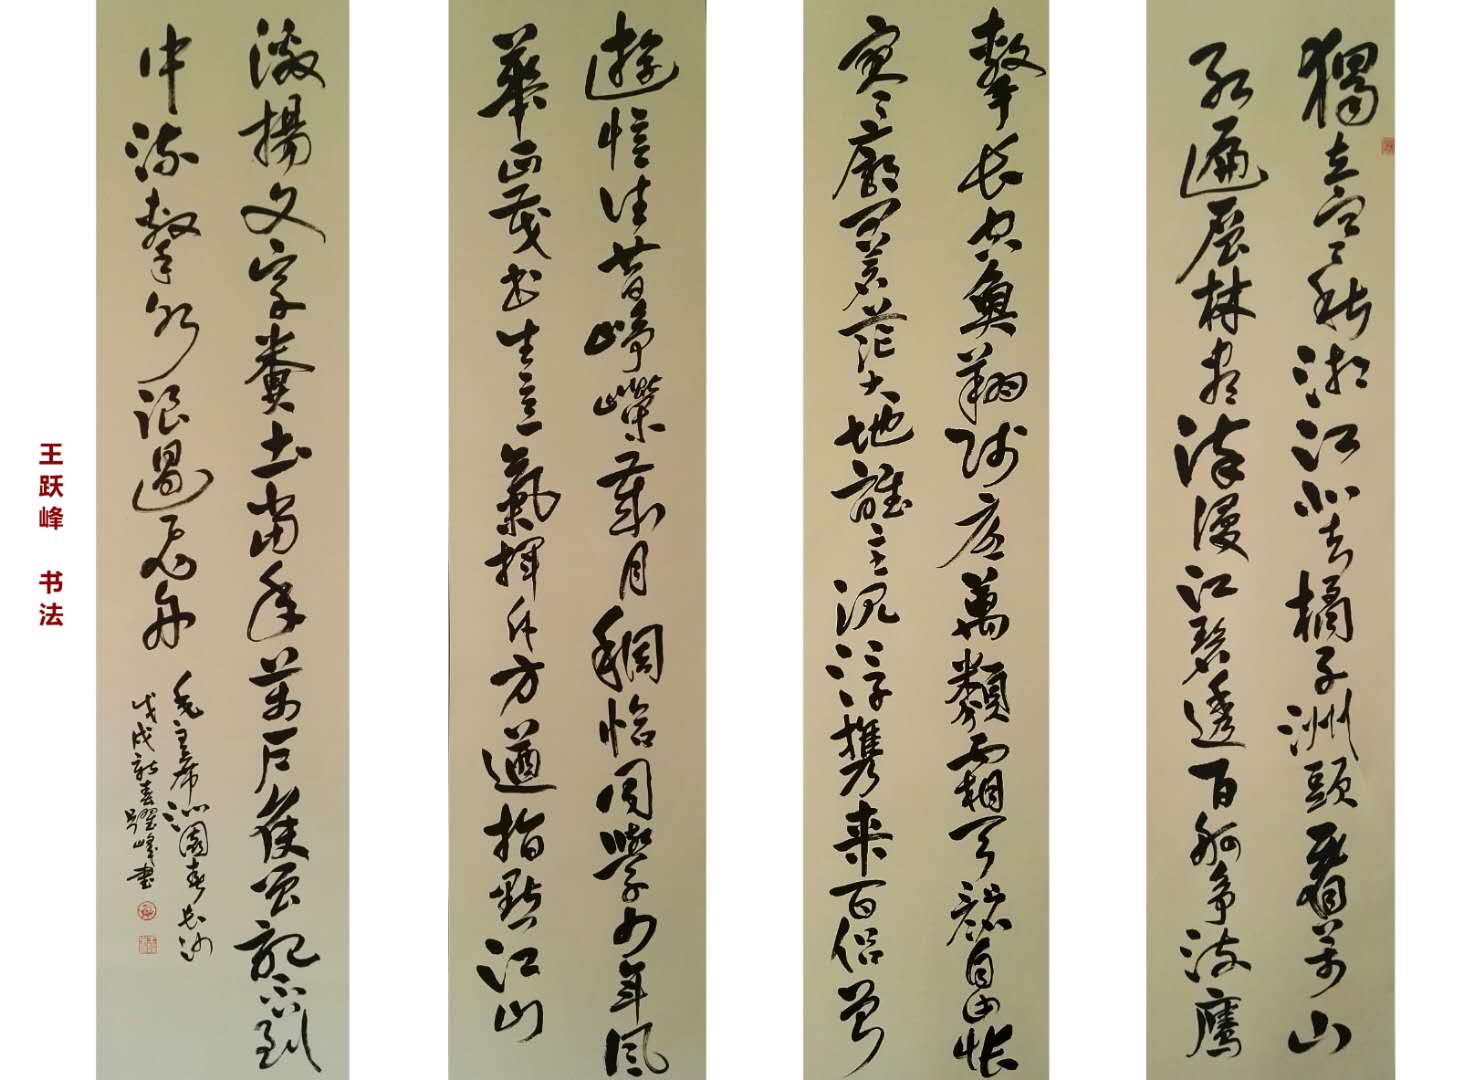 獨立寒秋湘江北去橘子洲頭看万山
紅遍层林盡染漫江碧透百舸争流鷹
擊長空魚翔浅底萬類霜天競自由悵
寥廓問蒼茫大地誰主沉浮携来百侣曾
遊憶往昔崢嶸歲月稠恰同學少年風
華正茂書生意氣揮斥方遒指點江山
激揚文字糞土當年万户侯曾記否到
中流擊水浪遏飛舟
毛主席沁園春長沙
戊戌新春躍峰書
王跃峰 书法